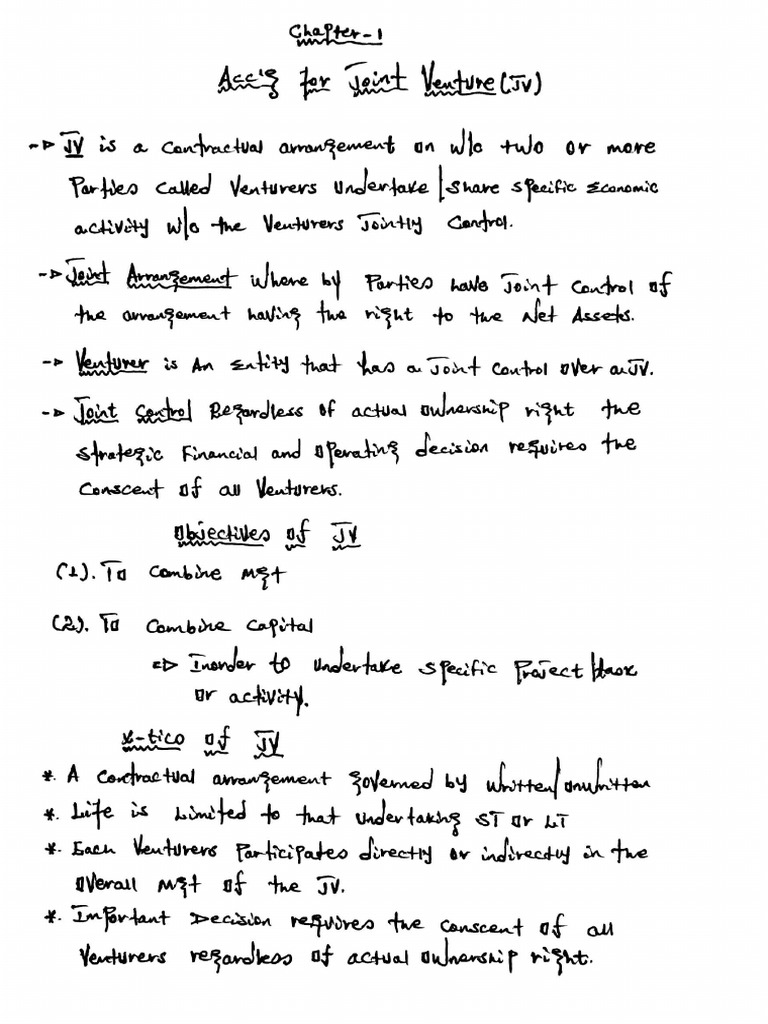 Chapter-1
Acc'g for Joint Venture (JV)
-> JV is a contractual arrangement on w/c two or more
Parties called Venturers undertake/share specific economic
activity w/c the Venturers Jointly Control.
-> Joint Arrangement where by Parties have Joint Control of
the arrangement having the right to the Net Assets.
-> Venturer is An Entity that has a Joint Control over a JV.
-> Joint Control Regardless of actual ownership right the
Strategic Financial and operating decision requires the
Conscent of all Venturers.
Objectives of JV
(1). To Combine mgt
(2). To Combine capital
=> Inorder to undertake specific Project/task
or activity.
x-tics of JV
*. A contractual arrangement governed by written/unwritten
*. Life is Limited to that undertaking ST or LT
*. Each Venturers Participates directly or indirectly in the
overall mgt of the JV.
*. Important Decision requires the conscent of all
Venturers regardless of actual ownership right.